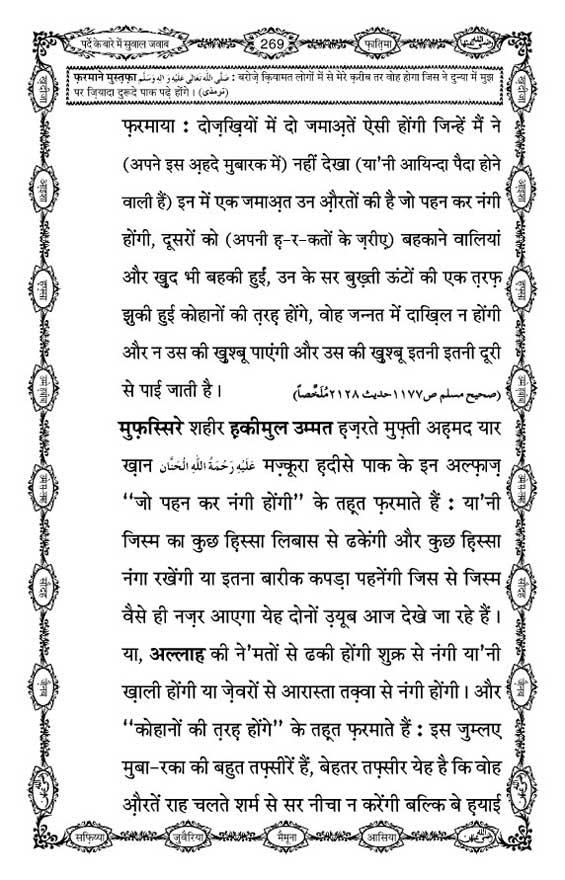 पर्दे के बारे में सुवाल जवाब
269
फ़ातिमा
फ़रमाने मुस्तफ़ा صَلَّى اللهُ تَعَالٰى عَلَيْهِ وَاٰلِهٖ وَسَلَّم : बरोज़े क़ियामत लोगों में से मेरे क़रीब तर वोह होगा जिस ने दुन्या में मुझ
पर ज़ियादा दुरूदे पाक पढ़े होंगे । (ترمذی)
फ़रमाया : दोज़ख़ियों में दो जमाअ़तें ऐसी होंगी जिन्हें मैं ने
(अपने इस अ़हदे मुबारक में) नहीं देखा (या'नी आयिन्दा पैदा होने
वाली हैं) इन में एक जमाअ़त उन औ़रतों की है जो पहन कर नंगी
होंगी, दूसरों को (अपनी ह़-र-कतों के ज़रीए) बहकाने वालियां
और ख़ुद भी बहकी हुईं, उन के सर बुख़्ती ऊंटों की एक त़रफ़
झुकी हुई कोहानों की त़रह़ होंगे, वोह जन्नत में दाख़िल न होंगी
और न उस की ख़ुश्बू पाएंगी और उस की ख़ुश्बू इतनी इतनी दूरी
से पाई जाती है । (صحیح مسلم ص۱۱۷۷حدیث ۲۱۲۸مُلَخَّصاً)
मुफ़स्सिरे शहीर ह़कीमुल उम्मत ह़ज़रते मुफ़्ती अह़मद यार
ख़ान عَلَيْهِ رَحْمَةُ اللهِ الْحَنَّان मज़्कूरा ह़दीसे पाक के इन अल्फ़ाज़
‘‘जो पहन कर नंगी होंगी’’ के तह़्त फ़रमाते हैं : या'नी
जिस्म का कुछ ह़िस्सा लिबास से ढकेंगी और कुछ ह़िस्सा
नंगा रखेंगी या इतना बारीक कपड़ा पहनेंगी जिस से जिस्म
वैसे ही नज़र आएगा येह दोनों उ़यूब आज देखे जा रहे हैं ।
या, अल्लाह की ने'मतों से ढकी होंगी शुक्र से नंगी या'नी
ख़ाली होंगी या ज़ेवरों से आरास्ता तक़्वा से नंगी होंगी । और
‘‘कोहानों की त़रह़ होंगे’’ के तह़्त फ़रमाते हैं : इस जुम्लए
मुबा-रका की बहुत तफ़्सीरें हैं, बेहतर तफ़्सीर येह है कि वोह
औ़रतें राह चलते शर्म से सर नीचा न करेंगी बल्कि बे ह़याई
सफ़िय्या
जुवैरिया
मैमूना
आसिया